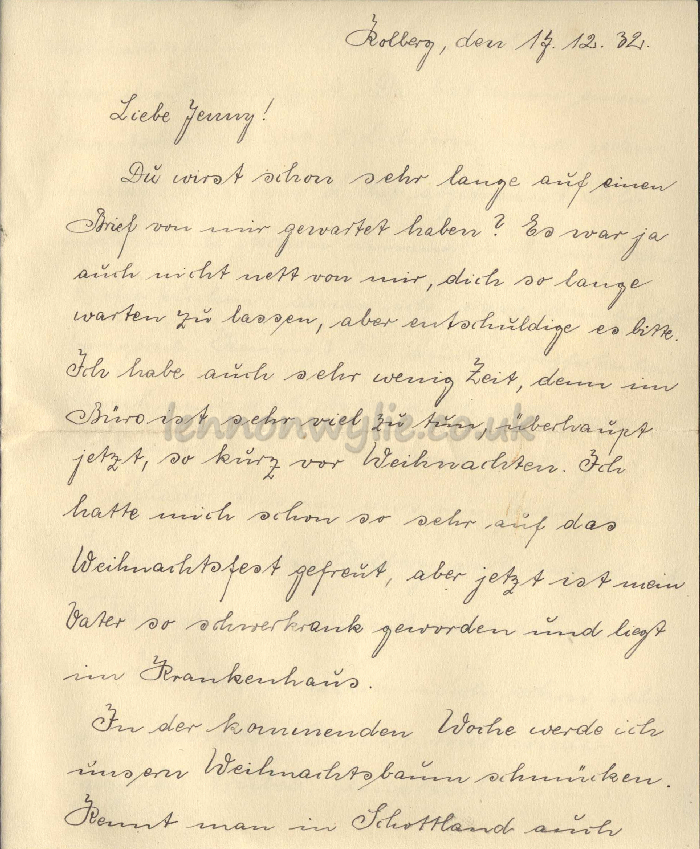 Kolberg, den 17. 12. 32.
Liebe Jenny!
Du wirst schon sehr lange auf einen
Brief von mir gewartet haben? Es war ja
auch nicht nett von mir, dich so lange
warten zu lassen, aber entschuldige es bitte.
Ich habe auch sehr wenig Zeit, denn im
Büro ist sehr viel zu tun, überhaupt
lennonwylie.co.uk
jetzt, so kurz vor Weihnachten. Ich
hatte mich schon so sehr auf das
Weihnachtsfest gefreut, aber jetzt ist mein
Vater so schwerkrank geworden und liegt
im Krankenhaus.
In der kommenden Woche werde ich
unsern Weihnachtsbaum schmücken.
Kennt man in Schottland auch